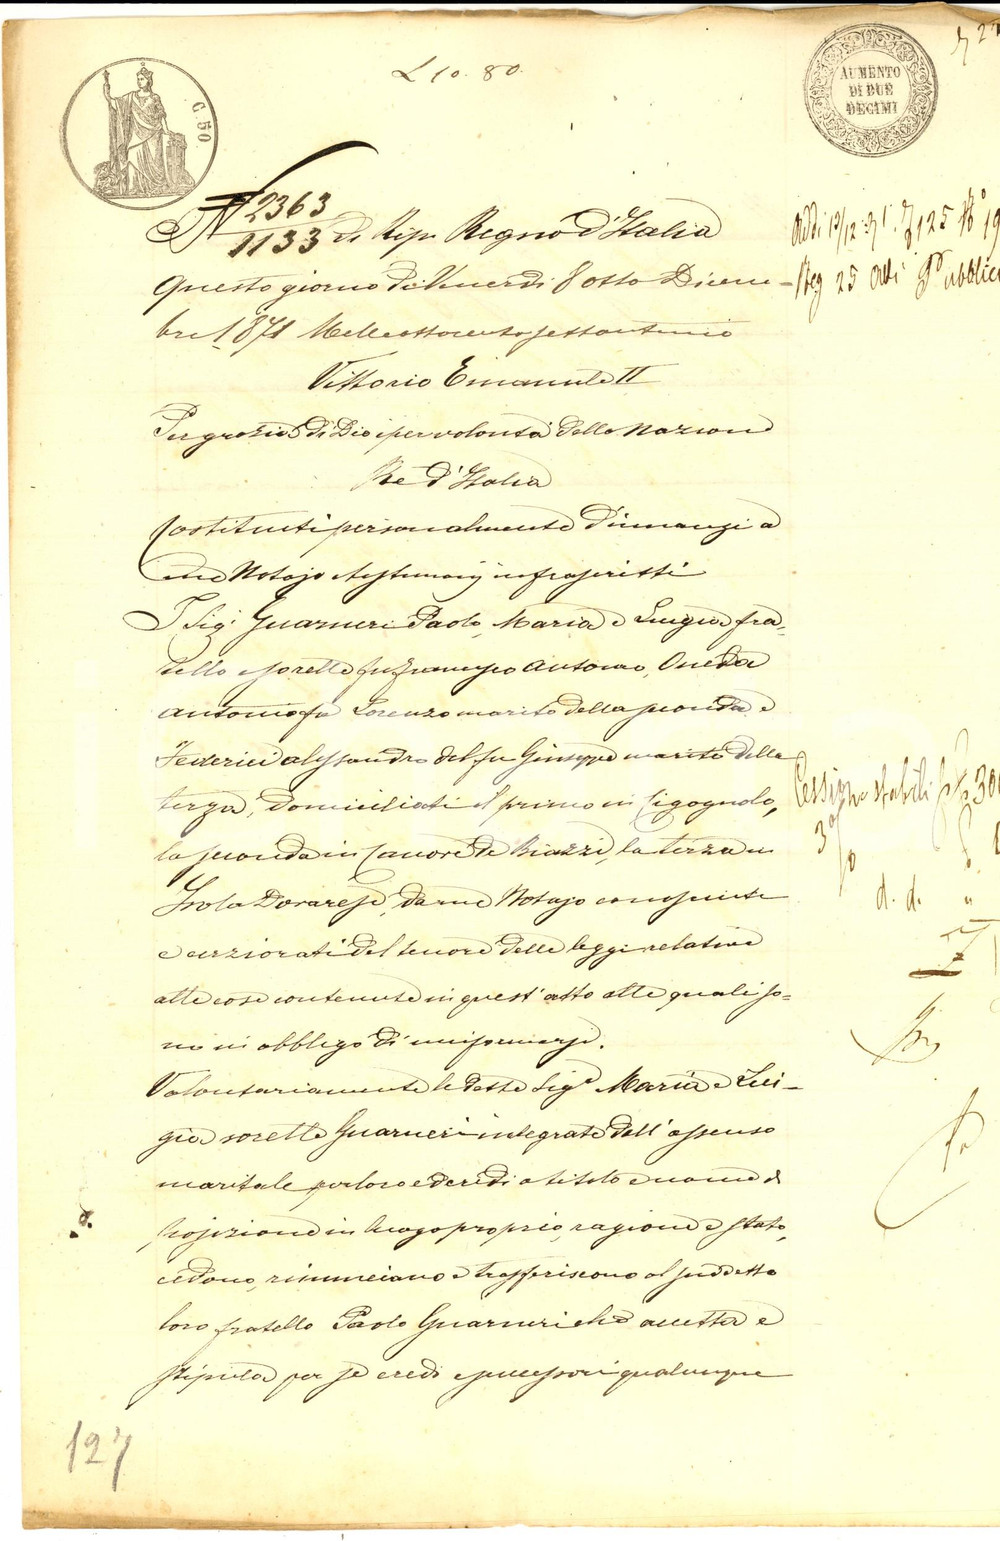 L 10. 80.
C. 50
AUMENTO
DI DUE
DECIMI
N 2363
1133 di Rep. Regno d'Italia
Questo giorno di Venerdi 8 otto Dicem-
bre 1871 Milleottocentosettantuno
Vittorio Emanuele II
Per grazia di Dio e per volontà della Nazione
Re d'Italia
Costituiti personalmente dinnanzi a
me Notajo e testimonij infrascritti
I Sig.i Guarneri Paolo, Maria e Luigia fra-
tello e sorelle fu Francesco Antonio, Oneda
Antonio fu Lorenzo marito della seconda e
Federici Alessandro del fu Giuseppe marito della
terza, domiciliati il primo in Cigognolo,
la seconda in Ca nove de Biazzi, la terza in
Isola Dovarese, da me Notajo conosciuti
e cerziorati del tenore delle leggi relative
alle cose contenute in quest'atto alle quali so-
no in obbligo di uniformarsi.
Volontariamente le dette Sig.e Maria e Lui-
gia sorelle Guarneri integrate dell'assenso
maritale per loro ed eredi a titolo e nome di
in luogo proprio, ragione e stato,
cedono, rinunciano e trasferiscono al suddetto
loro fratello Paolo Guarneri che accetta e
stipula per se eredi e successori qualunque
Reg 25 Atti Pubblici
Cessione stabili 300
3 %
d. d. "
127